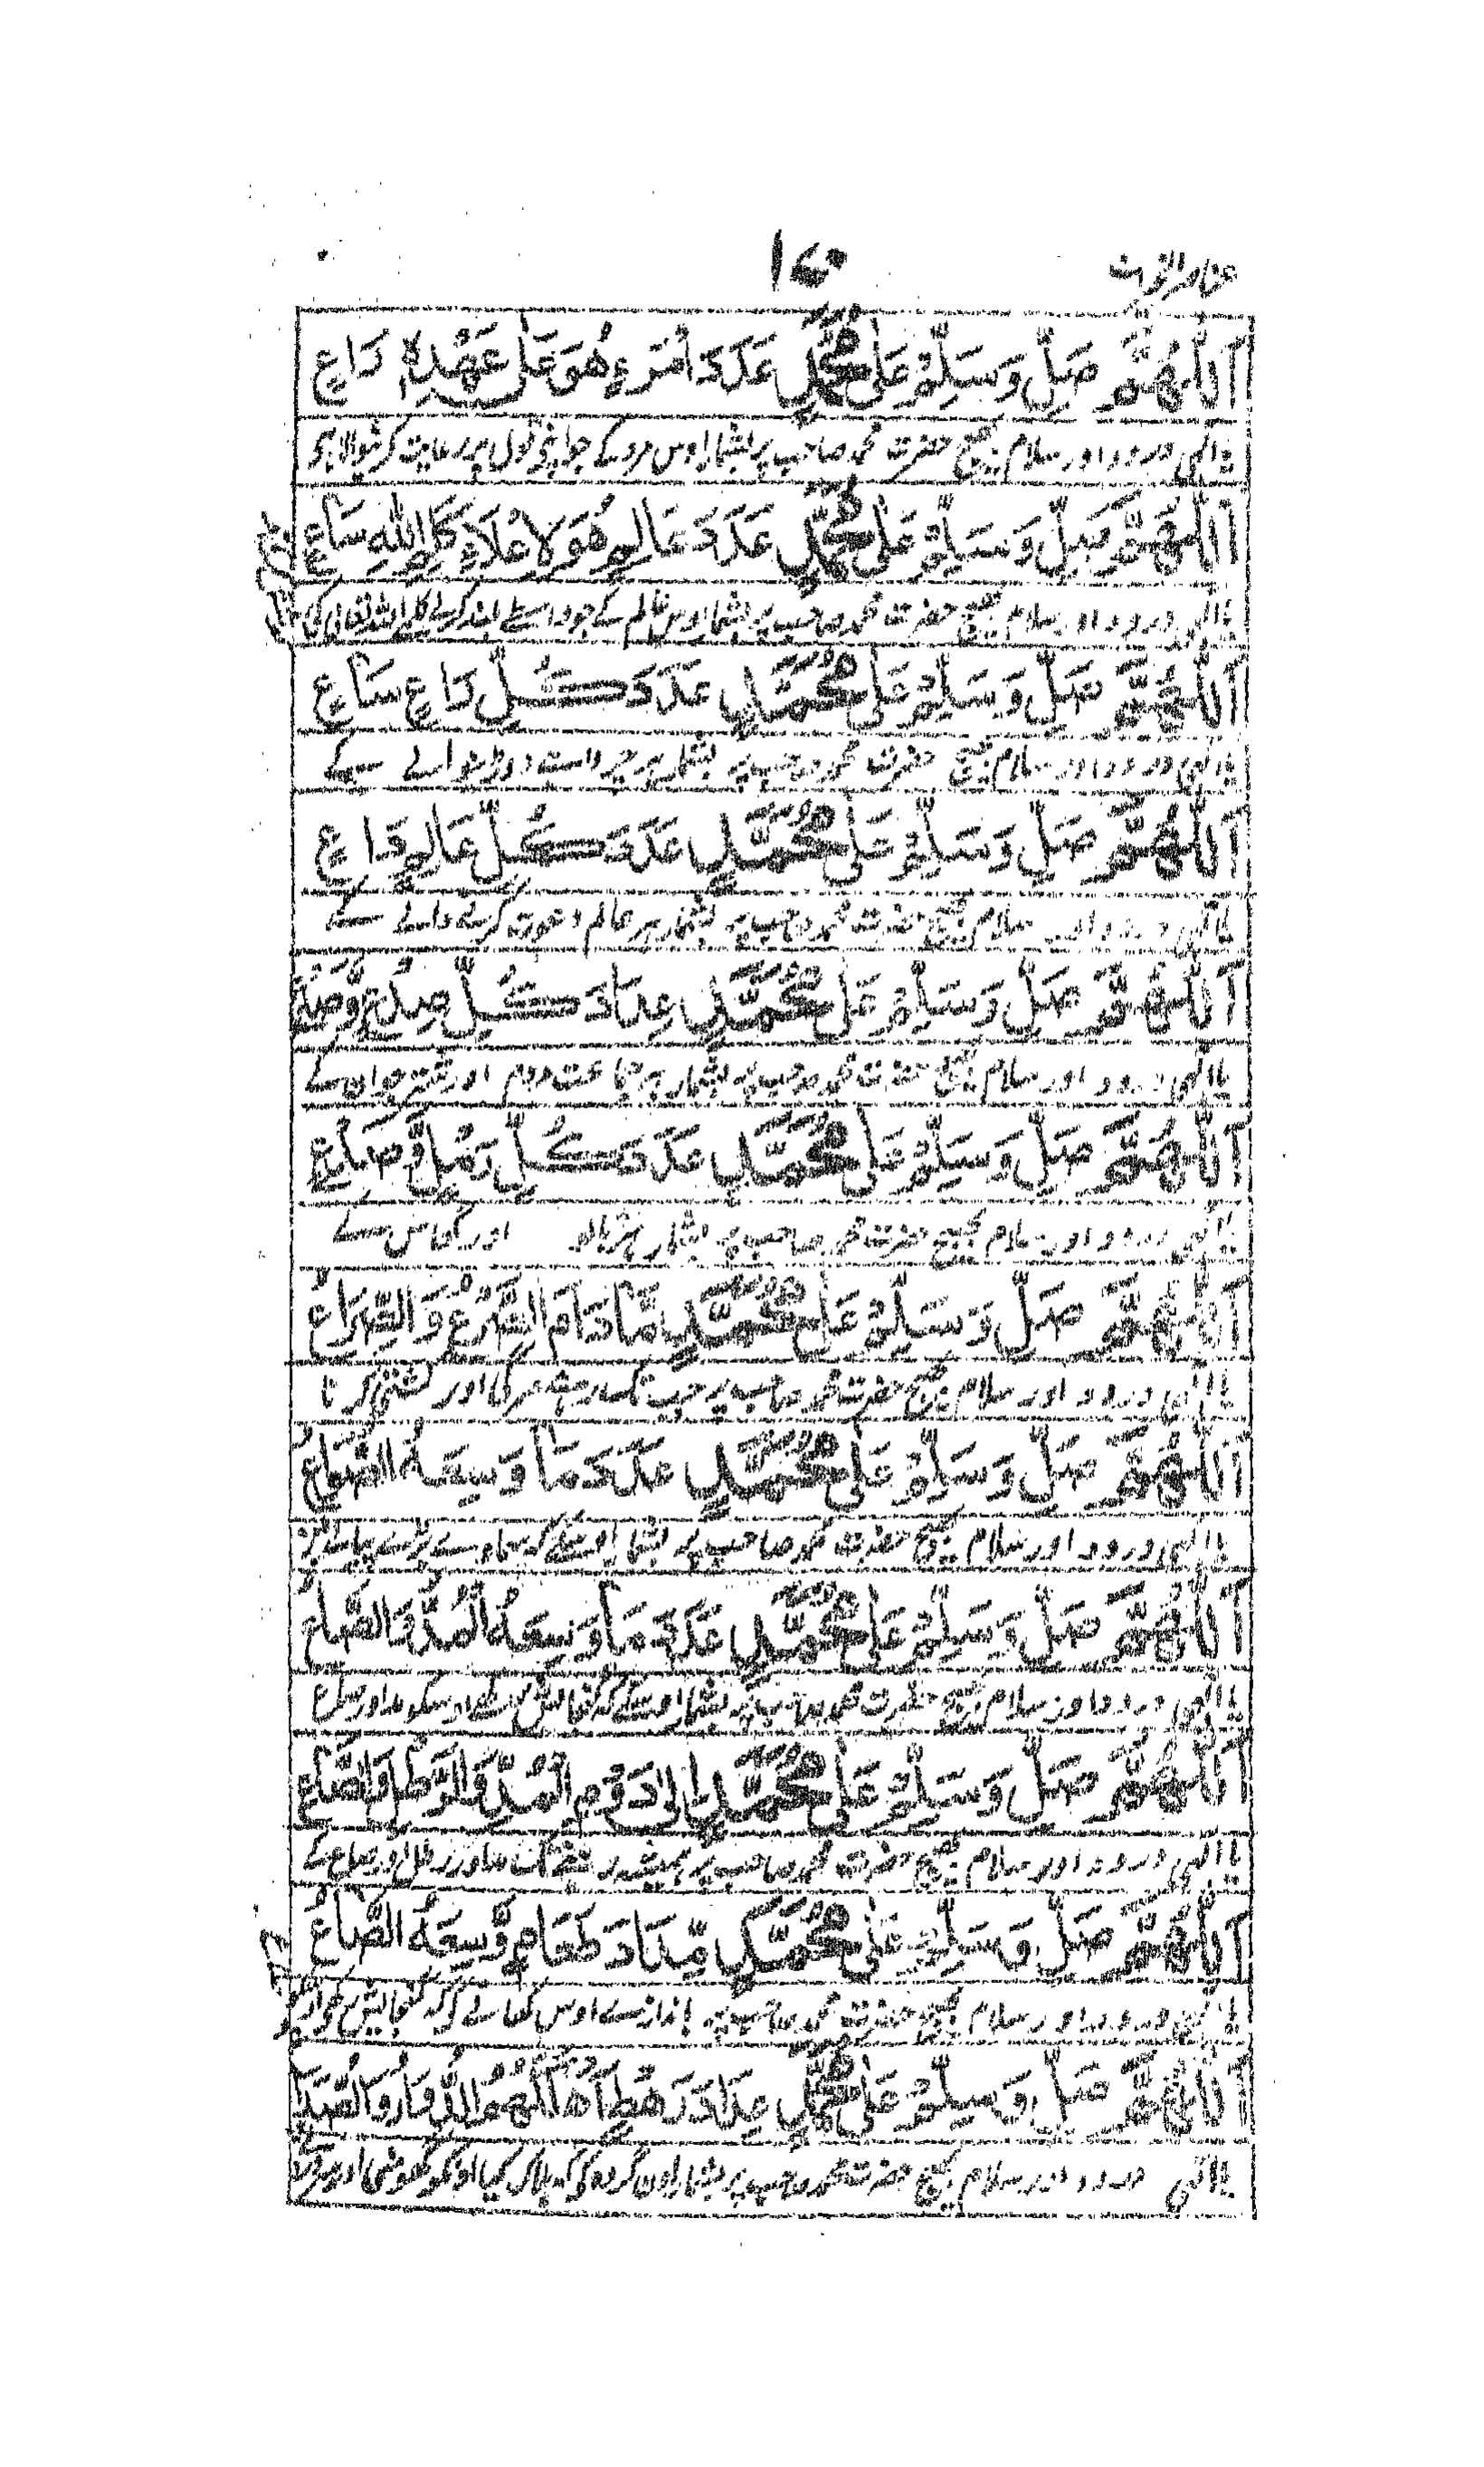 عناصر الخیرات
١٧٠
اَللّٰهُمَّ صَلِّ وَسَلِّمْ عَلٰى مُحَمَّدٍ عَدَدَ امْرَءٍ هُوَ عَلٰى عَهْدِهٖ رَاعٍ
یا الٰہی درود اور سلام بھیج حضرت محمد صاحب پر بشمار اوس مرد کے جو اپنی قول پر رعایت کرنیوالا ہی
اَللّٰهُمَّ صَلِّ وَسَلِّمْ عَلٰى مُحَمَّدٍ عَدَدَ عَالِمٍ هُوَ لِاِعْلَاءِ كَلِمِ اللّٰهِ سَاعٍ
یا الٰہی درود اور سلام بھیج حضرت محمد صاحب پر بشمار اوس عالم کے جو واسطے بلند کرنے کلمہ اللہ تعالی کی
اَللّٰهُمَّ صَلِّ وَسَلِّمْ عَلٰى مُحَمَّدٍ عَدَدَ كُلِّ رَاعٍ سَاعٍ
یا الٰہی درود اور سلام بھیج حضرت محمد صاحب پر بشمار ہر دوڑنیوالے کے
اَللّٰهُمَّ صَلِّ وَسَلِّمْ عَلٰى مُحَمَّدٍ عَدَدَ كُلِّ عَالِمٍ دَاعٍ
یا الٰہی درود اور سلام بھیج حضرت محمد صاحب پر بشمار ہر عالم دعوت کرنے والے کے
اَللّٰهُمَّ صَلِّ وَسَلِّمْ عَلٰى مُحَمَّدٍ عِدَادَ كُلِّ
یا الٰہی درود اور سلام بھیج حضرت محمد صاحب پر بشمار ہر جماعت مردم اور جوان کے
اَللّٰهُمَّ صَلِّ وَسَلِّمْ عَلٰى مُحَمَّدٍ عَدَدَ كُلِّ
یا الٰہی درود اور سلام بھیج حضرت محمد صاحب پر بشمار اور کے
اَللّٰهُمَّ صَلِّ وَسَلِّمْ عَلٰى مُحَمَّدٍ مَّا دَامَ الصَّرْعُ وَالصِّرَاعُ
یا الٰہی درود اور سلام بھیج حضرت محمد صاحب پر جب تک رہے مرگی اور کشتی کرنا
اَللّٰهُمَّ صَلِّ وَسَلِّمْ عَلٰى مُحَمَّدٍ عَدَدَ مَا وَسِعَهُ الصُّوَاعُ
یا الٰہی درود اور سلام بھیج حضرت محمد صاحب پر بشمار اوسکے کہ سماوے بڑے پیالے
اَللّٰهُمَّ صَلِّ وَسَلِّمْ عَلٰى مُحَمَّدٍ عَدَدَ مَا وَسِعَهُ الْمُدُّ وَالصَّاعُ
یا الٰہی درود اور سلام بھیج حضرت محمد صاحب پر بشمار اوسکے کہ گنجائش رکھے اوسکو مد اور صاع
اَللّٰهُمَّ صَلِّ وَسَلِّمْ عَلٰى مُحَمَّدٍ الْمُدِّ وَالرَّطْلِ وَالصَّاعِ
یا الٰہی درود اور سلام بھیج حضرت محمد صاحب پر ہمیشہ رہنے تک مد اور رطل اور صاع کے
اَللّٰهُمَّ صَلِّ وَسَلِّمْ عَلٰى مُحَمَّدٍ مِّدَادَ طَعَامٍ وَّسِعَهُ الصَّاعُ
یا الٰہی درود اور سلام بھیج حضرت محمد صاحب پر بانداز اوس کھانے کے کہ گنجایش
اَللّٰهُمَّ صَلِّ وَسَلِّمْ عَلٰى مُحَمَّدٍ عِدَادَ رَهْطٍ اَهْلَكَهُمُ الدُّوَارُ وَالصُّدَاعُ
یا الٰہی درود اور سلام بھیج حضرت محمد صاحب پر بشمار اون گروہ کی کہ ہلاک کیا اونکو گھومنی اور